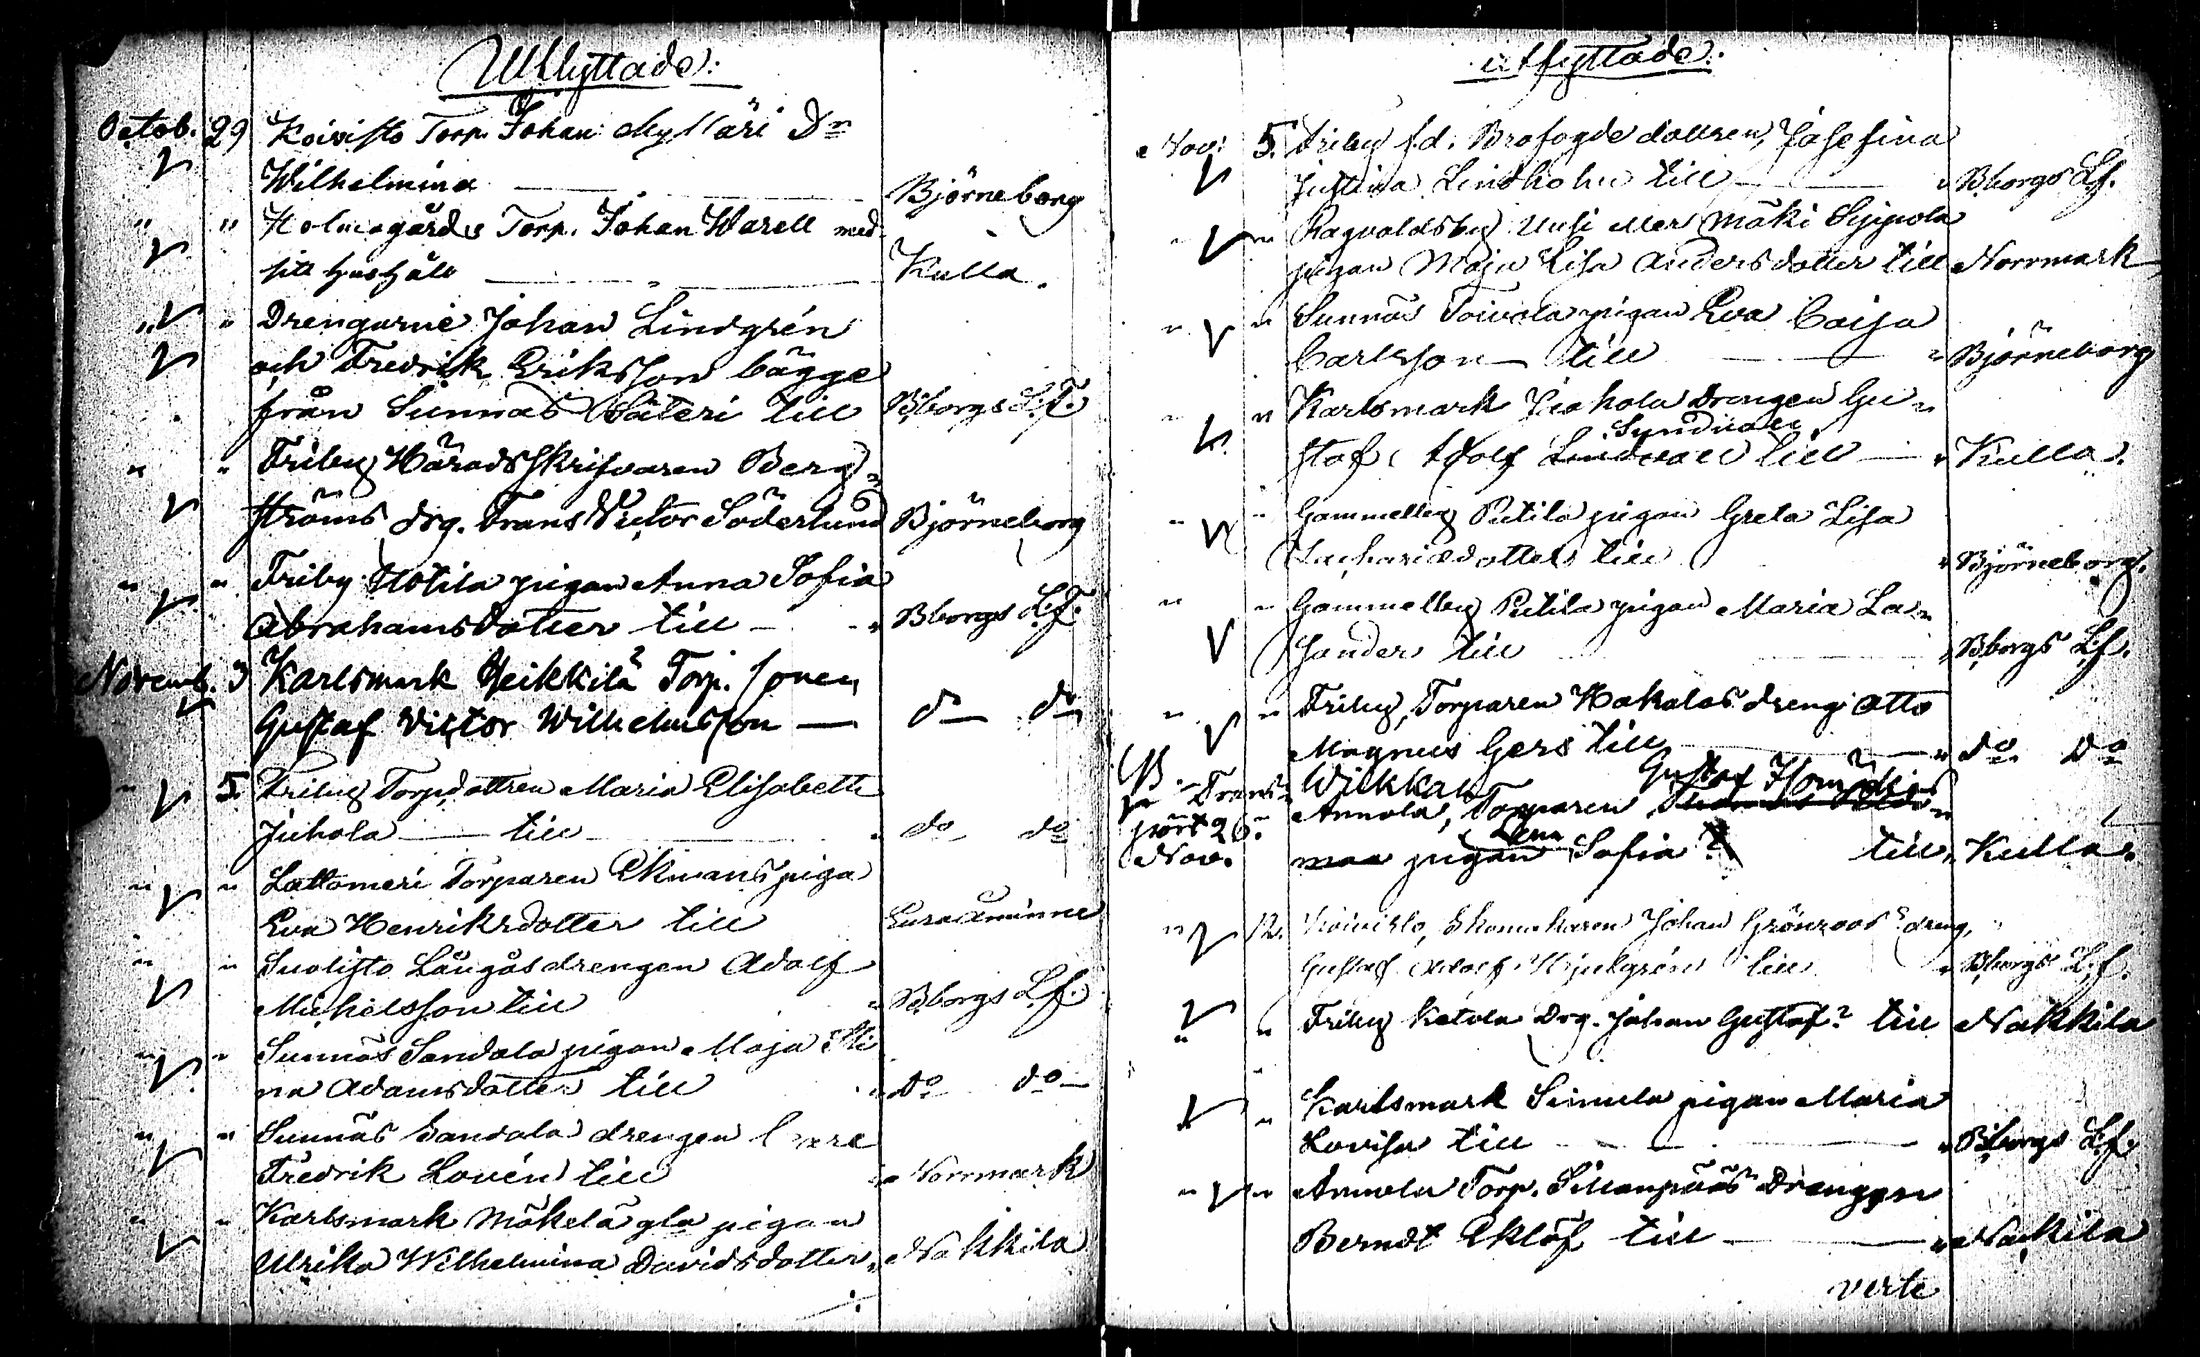 Utflyttade:
Octob. 29 Koivisto Torp. Johan Mylläri Dr
Wilhelmina — Björneborg
" " Holmagårds Torp. Johan Warell med
sitt hushåll — Kulla.
" " Drengarne Johan Lindgrén
och Fredrik Eriksson bägge
från Sunnäs Säteri till Bborgs L.f.
" " Friby Häradsskrifvaren Berg-
ströms drg. Frans Victor Söderlund Björneborg
" " Friby Uotila pigan Anna Sofia
Abrahamsdotter till — " Bborgs L.f.
Novemb. 3 Karlsmark Heikkilä Torp. sonen
Gustaf Victor Wilhelmsson — do do
" 5. Friby Torpdottren Maria Elisabeth
Juhola — till — " do do
" " Lattomeri Torparen Ekmans piga
Eva Henriksdotter till Euraåminne
" " Suolisto Långås drengen Adolf
Michelsson till " Bborgs L.f.
" " Sunnäs Sandala pigan Maja Sti
na Adamsdotter till " do do
" " Sunnäs Sandala drengen
Fredrik Lovén till " Norrmark
" " Karlsmark Mäkelä gla pigan
Ulrika Wilhelmina Davidsdotter " Nakkila
utflyttade:
Nov: 5. Friby f.d. Brofogde dottren, Josefina
Justina Lindholm till — " Bborgs L.f.
" " Ragvaldsby Uusi eller Mäki Sippola
pigan Maja Lisa Andersdotter till Norrmark
" " Sunnäs Toivola pigan Eva Caisa
Carlsson — till — " Björneborg
" " Karlsmark Juhola Drengen Gu-
Lundvall
staf Adolf Lindvall till — " Kulla.
" " Gammelby Putila pigan Greta Lisa
Zachariædotter till " Björneborg.
" " Gammelby Putila pigan Maria La-
sander till " Bborgs L.f.
" " Friby, Torparen Hakalas dreng Otto
Magnus Gers till — " do do
Wilkkas Gustaf
Trans- Annola, Torparen
port 26 Lena
Nov. maa pigan Sofia ? till, Kulla.
" 12. Koivisto, Skomakaren Johan Grönroos' dreng,
Gustaf Adolf till " Bborgs L.f.
" " Friby Ketola Drg. Johan Gustaf? till Nakkila
" " Karlsmark Simula pigan Maria
Lovisa till — " Bborgs L.f.
" " Annola Torp. Sillanpääs Drengen
Berndt Eklöf till — " Nakkila
verte